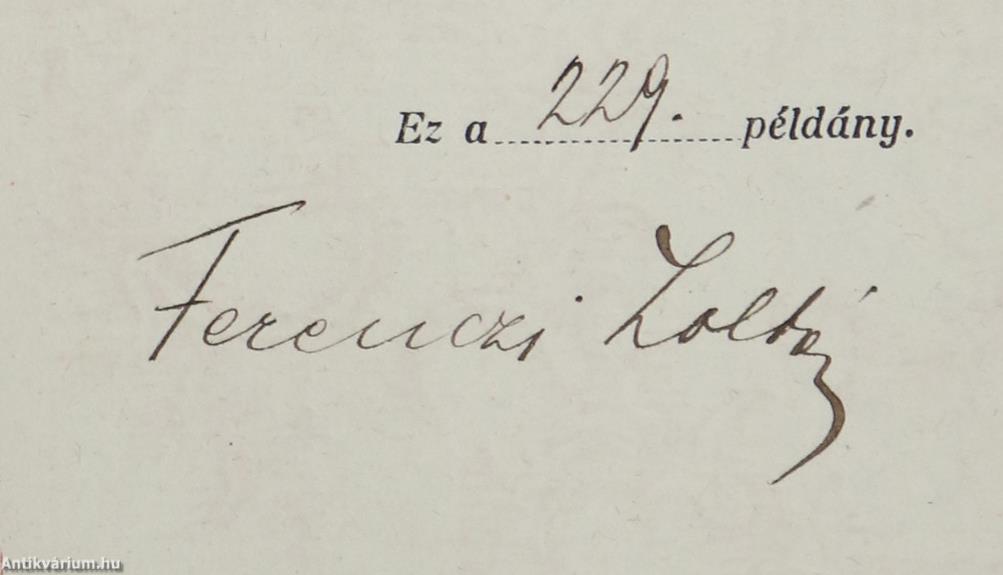 Ez a 229. példány.
Ferenczi Zoltán
Antikvárium.hu